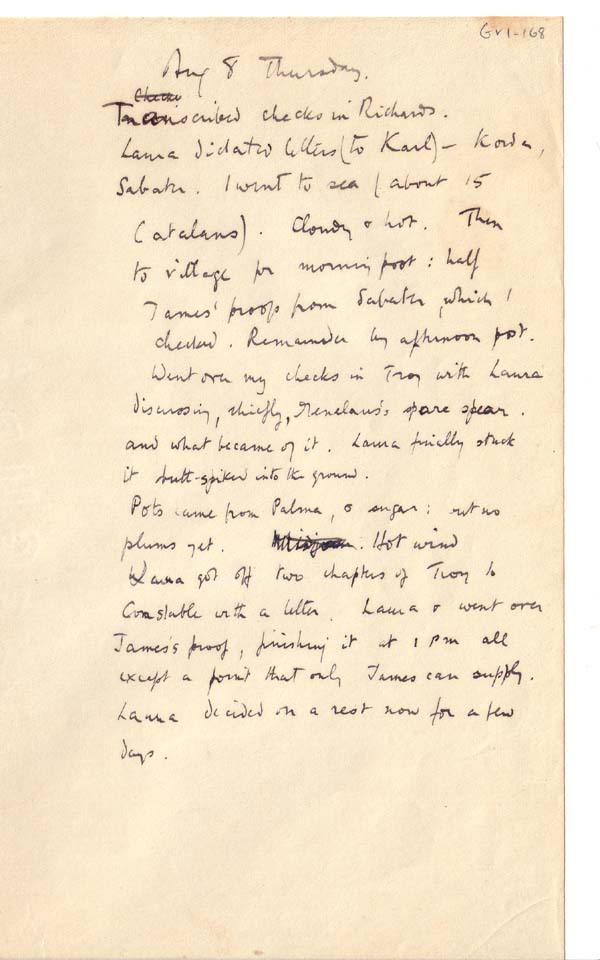 GV1-168
Aug 8 Thursday.
Checke
Transcribed checks in Richards.
Laura dictated letters (to Karl) – Korda,
Sabater. I went to sea (about 15
Catalans). Cloudy & hot. Then
to village for morning post: half
James' proofs from Sabater, which I
checked. Remainder by afternoon post.
Went over my checks in Troy with Laura
discussing, chiefly, Menelaus's spare spear.
and what became of it. Laura finally stuck
it butt-spiked into the ground.
Pots came from Palma, & sugar: but no
plums yet. Hot wind
Laura got off two chapters of Troy to
Constable with a letter. Laura & went over
James's proof, finishing it at 1 pm all
except a point that only James can supply.
Laura decided on a rest now for a few
days.